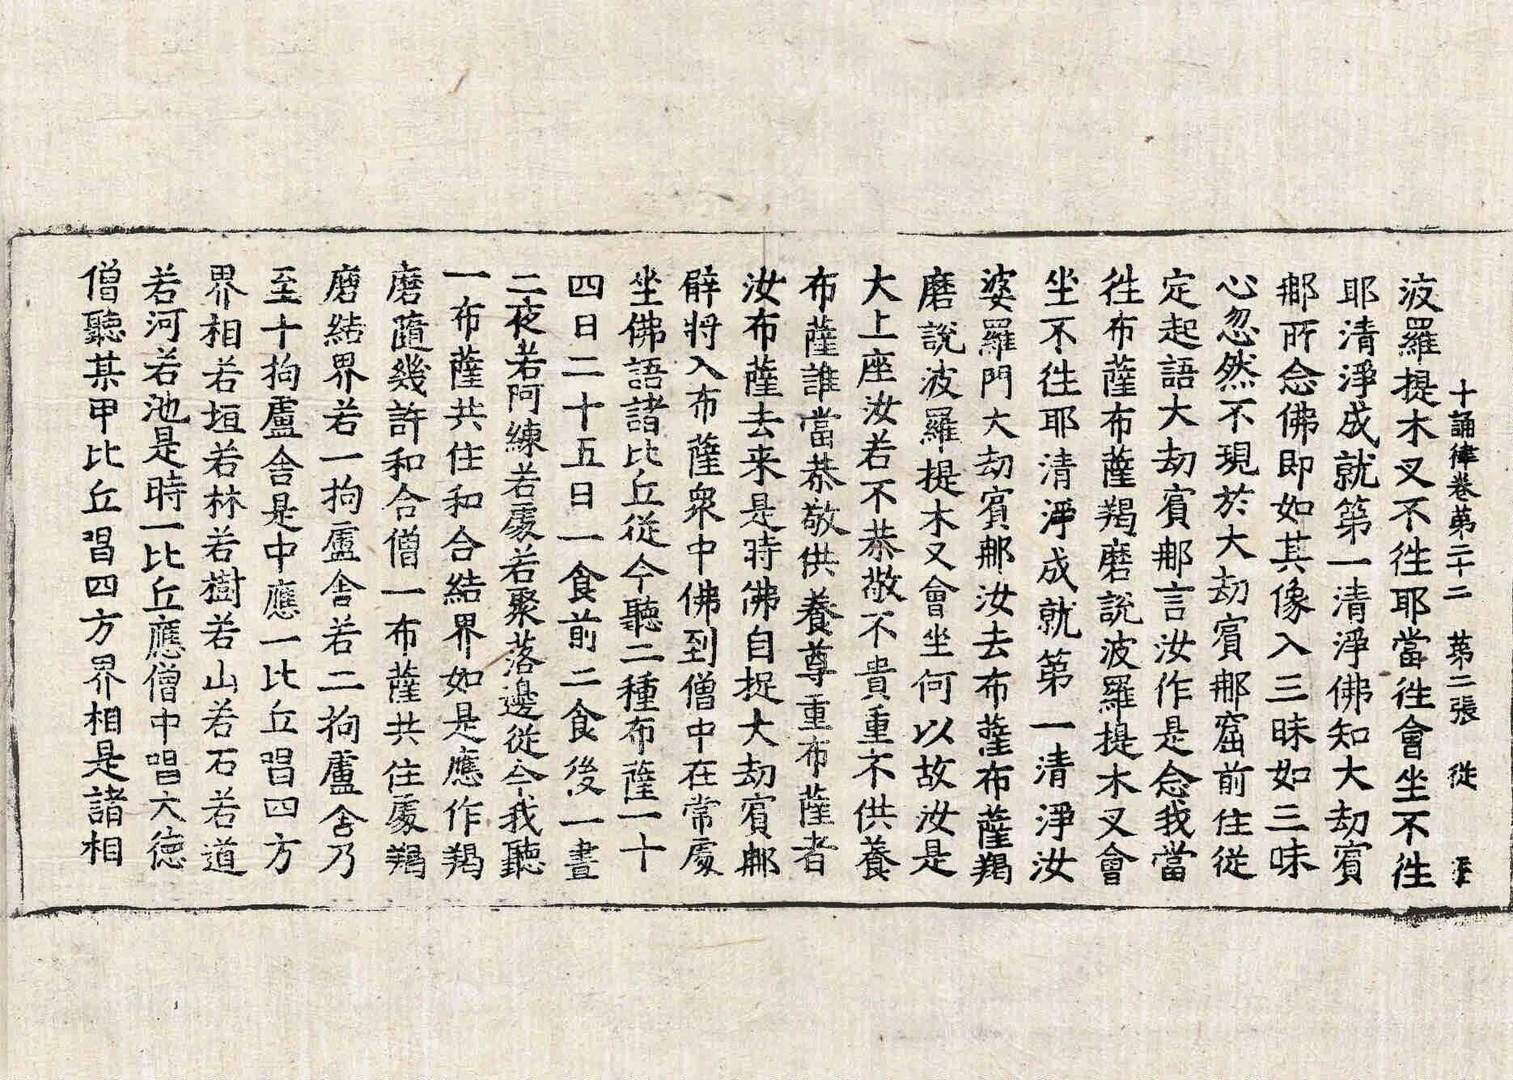 十誦律卷第二十二 第二張 從
波羅提木叉不往耶當往會坐不往
耶清淨成就第一清淨佛知大劫賓
那所念佛即如其像入三昧如三昧
心忽然不現於大劫賓那窟前住從
定起語大劫賓那言汝作是念我當
往布薩布薩羯磨說波羅提木叉會
坐不往耶清淨成就第一清淨汝
婆羅門大劫賓那汝去布薩布薩羯
磨說波羅提木叉會坐何以故汝是
大上座汝若不恭敬不貴重不供養
布薩誰當恭敬供養尊重布薩者
汝布薩去来是時佛自捉大劫賓那
臂將入布薩衆中佛到僧中在常處
坐佛語諸比丘從今聽二種布薩一十
四日二十五日一食前二食後一晝
二夜若阿練若處若聚落邊從今我聽
一布薩共住和合結界如是應作羯
磨隨幾許和合僧一布薩共住處羯
磨結界若一拘盧舍若二拘盧舍乃
至十拘盧舍是中應一比丘唱四方
界相若垣若林若樹若山若石若道
若河若池是時一比丘應僧中唱大德
僧聽某甲比丘唱四方界相是諸相